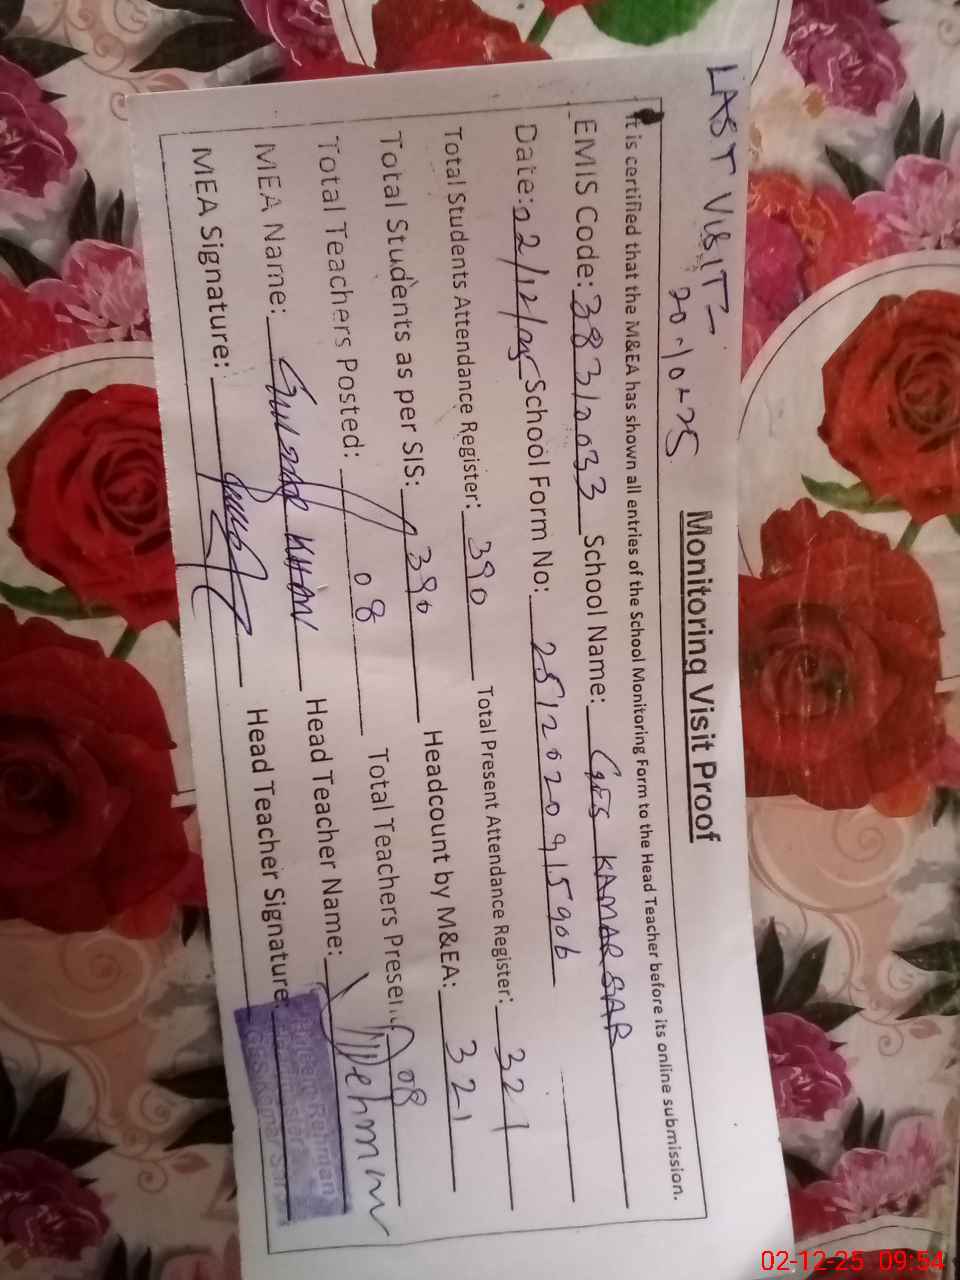 LAST VISIT-
20-10-25
Monitoring Visit Proof
It is certified that the M&EA has shown all entries of the School Monitoring Form to the Head Teacher before its online submission.
EMIS Code: 38312033 School Name: GES KAMAR SAR
Date: 02/12/25 School Form No: 2512020915906
Total Students Attendance Register: 390 Total Present Attendance Register: 321
Total Students as per SIS: 390 Headcount by M&EA: 321
Total Teachers Posted: 08 Total Teachers Present: 08
MEA Name: KHAN Head Teacher Name:
MEA Signature: Head Teacher Signature:
Rahman
Headmaster
GPS Kamar Sar
02-12-25 09:54